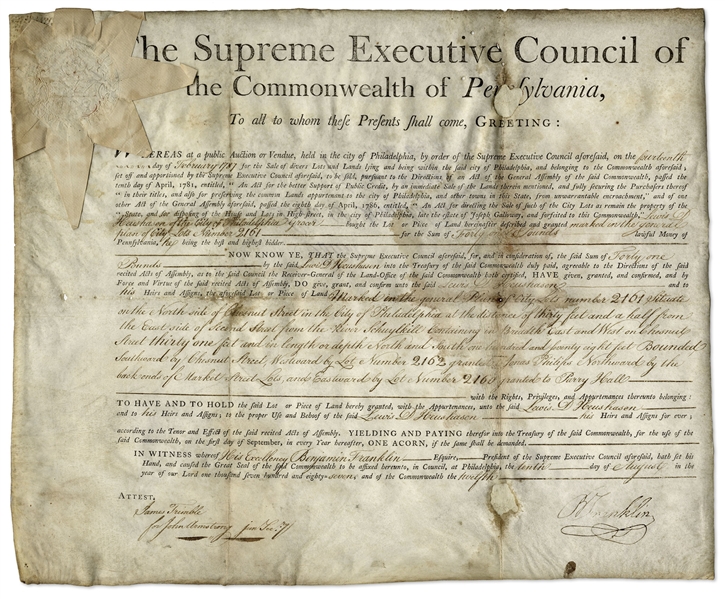 The Supreme Executive Council of
the Commonwealth of Pennsylvania,
To all to whom these Presents shall come, GREETING:
WHEREAS at a public Auction or Vendue, held in the city of Philadelphia, by order of the Supreme Executive Council aforesaid, on the fourteenth
day of February 1787 for the Sale of divers Lots and Lands lying and being within the said city of Philadelphia, and belonging to the Commonwealth aforesaid,
set off and apportioned by the Supreme Executive Council aforesaid, to be sold, pursuant to the Directions of an Act of the General Assembly of the said Commonwealth, passed the
tenth day of April, 1781, entitled, "An Act for the better Support of Public Credit, by an immediate Sale of the Lands therein mentioned, and fully securing the Purchasers thereof
"in their titles, and also for preserving the common Lands appurtenant to the city of Philadelphia, and other towns in this State, from unwarrantable encroachment," and of one
other Act of the General Assembly aforesaid, passed the eighth day of April, 1786, entitled, "An Act for directing the Sale of such of the City Lots as remain the property of the
"State, and for disposing of the High and Lays in High-street, in the city of Philadelphia, late the estate of Joseph Galloway, and forfeited to this Commonwealth," Lewis D
Heushason of the City of Philadelphia Grocer bought the Lot or Piece of Land hereinafter described and granted marked in the general
plan of City Lots Number 2161 for the Sum of Forty one Pounds lawful Money of
Pennsylvania, he being the best and highest bidder.
NOW KNOW YE, THAT the Supreme Executive Council aforesaid, for, and in consideration of, the said Sum of Forty one
Pounds by the said Lewis D Heushason into the Treasury of the said Commonwealth duly paid, agreeable to the Directions of the said
recited Acts of Assembly, as to the said Council the Receiver-General of the Land-Office of the said Commonwealth hath certified, HAVE given, granted, and confirmed, and by
Force and Virtue of the said recited Acts of Assembly, DO give, grant, and confirm unto the said Lewis D Heushason and to
his Heirs and Assigns, the aforesaid Lot or Piece of Land Marked in the general Plan of City Lots number 2161 situate
on the North side of Chesnut Street in the City of Philadelphia at the distance of thirty feet and a half from
the East side of Second Street from the River Schuylkill Containing in breadth East and West on Chesnut
Street thirty one feet and in length or depth North and South one hundred and seventy eight feet Bounded
Southward by Chesnut Street Westward by Lot Number 2162 granted to Jonas Philips Northward by the
back ends of Market Street Lots, and Eastward by Lot Number 2160 granted to Perry Hall
with the Rights, Privileges, and Appurtenances thereunto belonging:
TO HAVE AND TO HOLD the said Lot or Piece of Land hereby granted, with the Appurtenances, unto the said Lewis D Heushason
and to his Heirs and Assigns, to the proper Use and Behoof of the said Lewis D Heushason his Heirs and Assigns for ever;
according to the Tenor and Effect of the said recited Acts of Assembly. YIELDING AND PAYING therefor into the Treasury of the said Commonwealth, for the use of the
said Commonwealth, on the first day of September, in every Year hereafter, ONE ACORN, if the same shall be demanded.
IN WITNESS whereof His Excellency Benjamin Franklin Esquire, President of the Supreme Executive Council aforesaid, hath set his
Hand, and caused the Great Seal of the said Commonwealth to be affixed hereunto, in Council, at Philadelphia, the tenth day of August in the
year of our Lord one thousand seven hundred and eighty-seven and of the Commonwealth the twelfth
ATTEST,
James Trimble
for John Armstrong jun Sec.y
B Franklin